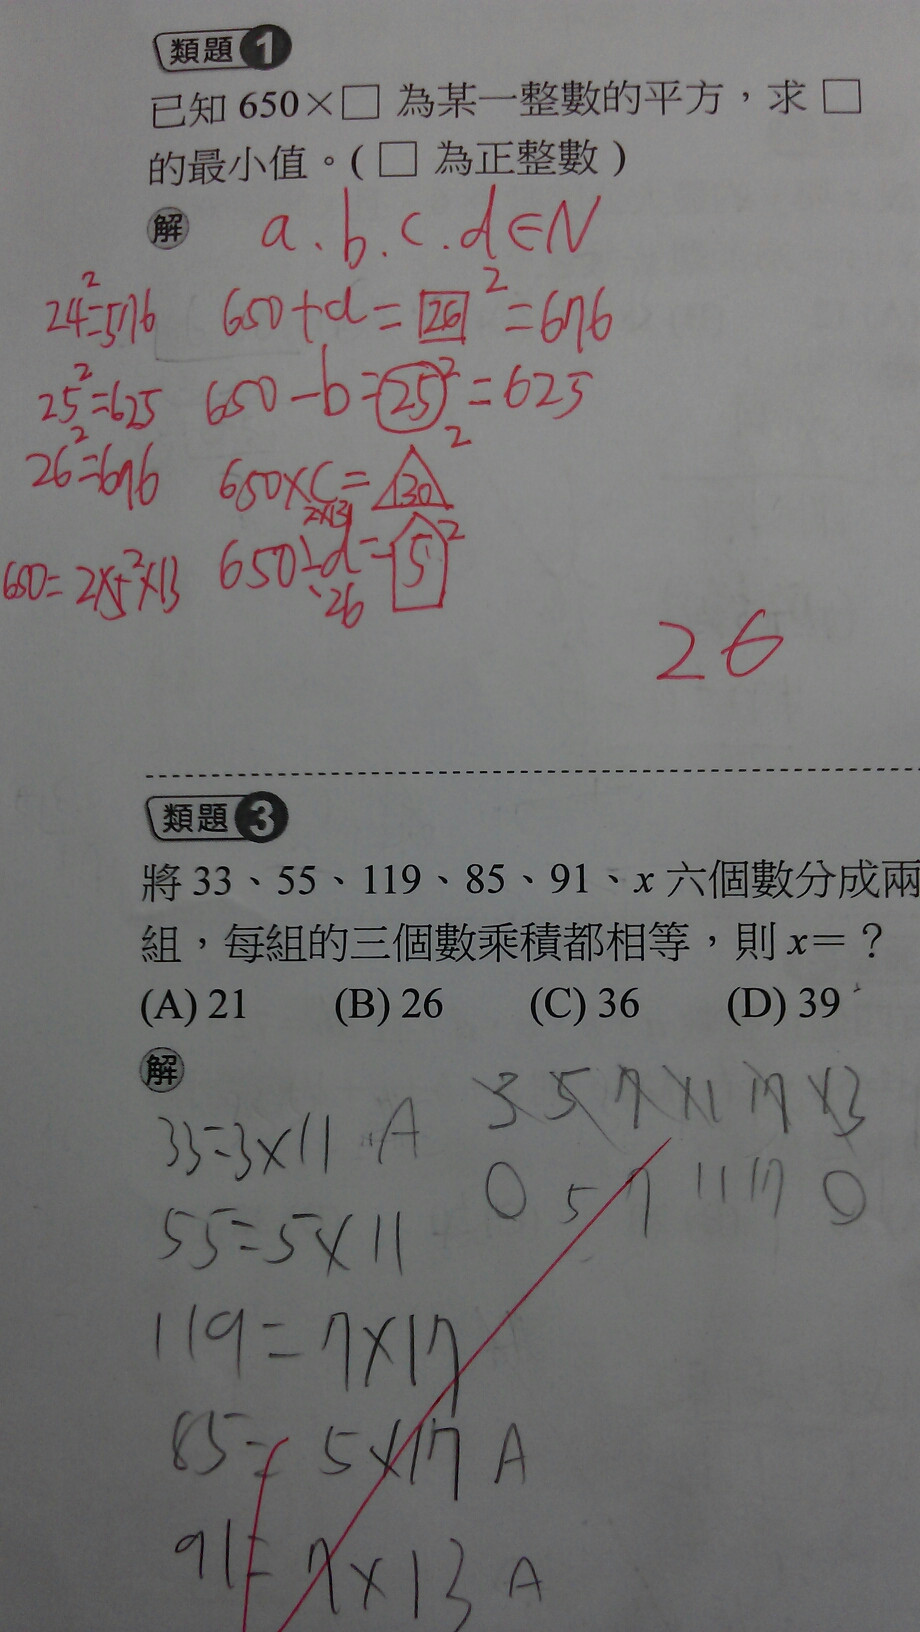 類題 1
已知 650×□ 為某一整數的平方，求 □
的最小值。( □ 為正整數 )
解
a.b.c.d∈N
24²=576 650+a=26²=676
25²=625 650-b=25²=625
26²=676 650×c=130²
2×13
650=2×5²×13 650÷d=5²
26
26
類題 3
將 33、55、119、85、91、x 六個數分成兩
組，每組的三個數乘積都相等，則 x＝？
(A) 21 (B) 26 (C) 36 (D) 39
解
3 5 7 11 17 13
33=3×11 A
0 5 7 11 17 0
55=5×11
119=7×17
85=5×17 A
91=7×13 A